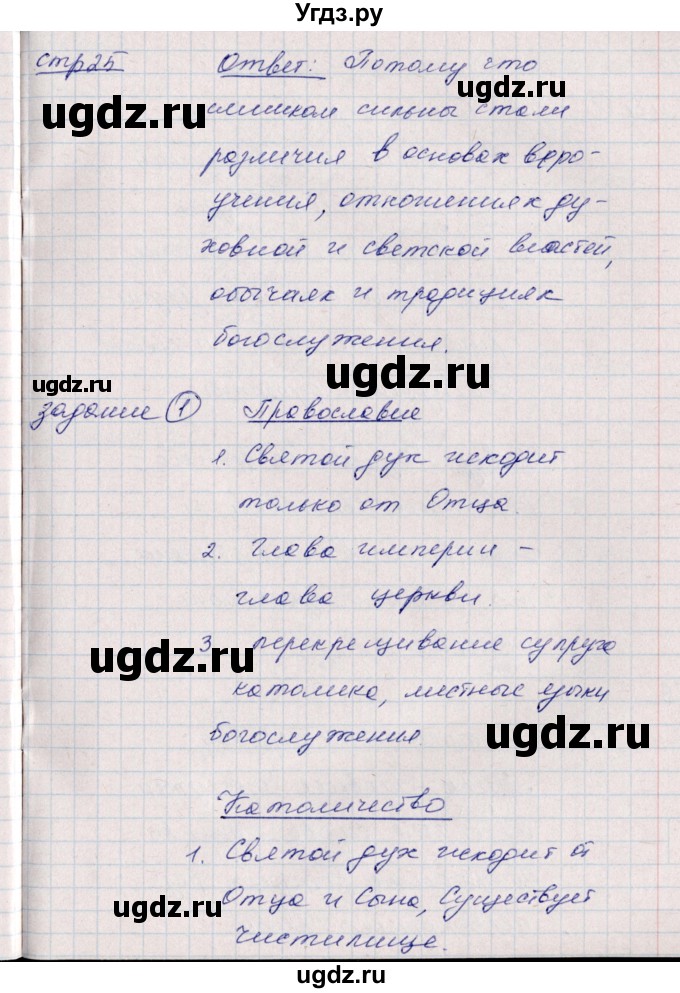 Угдз.ру
стр25 Ответ: Потому что
ugdz.ru
ugdz.ru
слишком сильны стали
различия в основах веро-
учения, отношениях ду-
ховной и светской властей,
обычаях и традициях
богослужения.
ugdz.ru
ugdz.ru
задание 1 Православие
1. Святой дух исходит
только от Отца.
ugdz.ru
2. Глава империи -
глава церкви.
3. перекрещивание супруга
ugdz.ru
католика, местные языки
богослужения.
ugdz.ru
Католичество
1. Святой дух исходит от
Отца и Сына, Существует
ugdz.ru
чистилище.
ugdz.ru